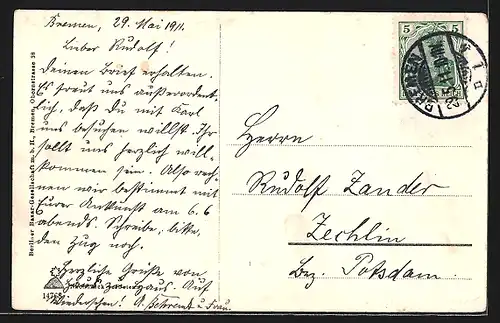 Bremen, 29. Mai 1911.
Lieber Rudolf!
Deinen Brief erhalten.
Es freut uns außerordent-
lich, daß Du mit Karl
uns besuchen willst. Ihr
sollt uns herzlich will-
kommen sein. Also rech-
nen wir bestimmt mit
Eurer Ankunft am 6.6
abends. Schreibe, bitte,
den Zug noch.
Herzliche Grüße von
Haus zu Haus. Auf
Wiedersehen! A. Behrendt u. Frau.
Berliner Bazar-Gesellschaft m. b. H., Bremen, Obernstrasse 38
5 5
BREMEN
Herrn
Rudolf Zander
Zechlin
Bez. Potsdam